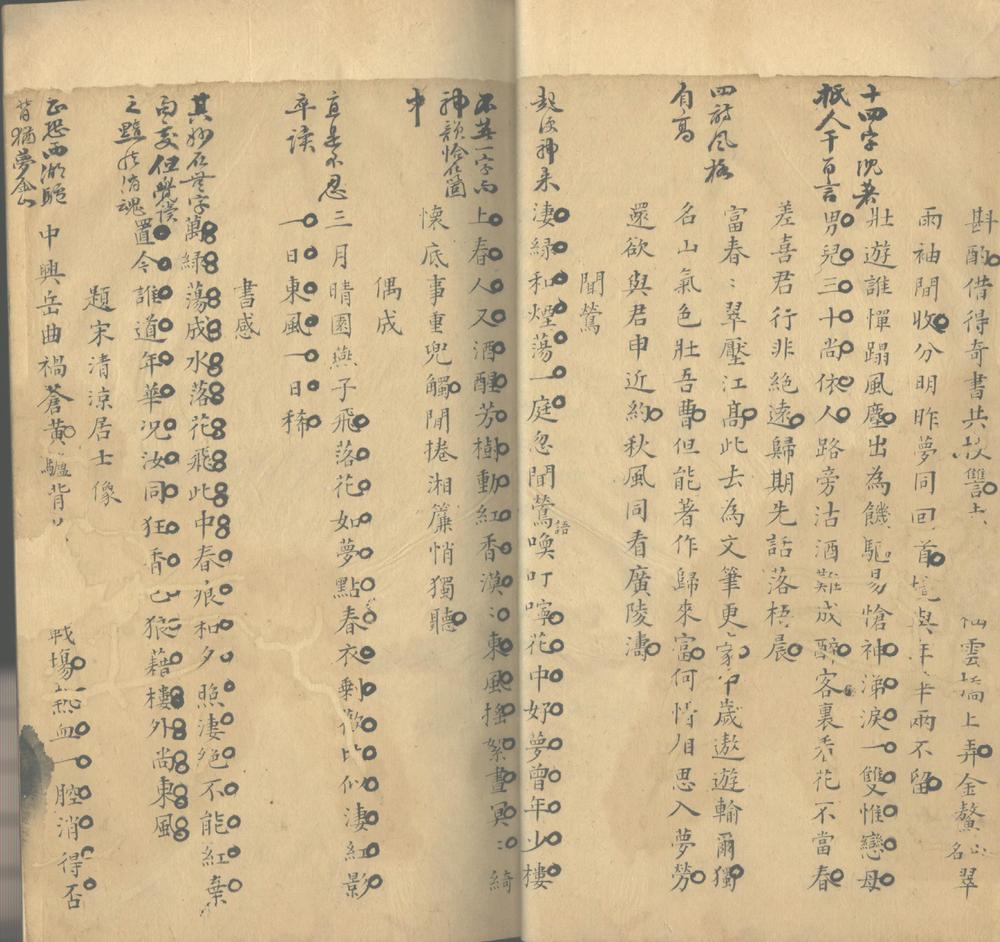 斟酌借得奇書共校讐
仙雲端上弄金鰲山名翠
雨袖間收分明昨夢同回首
與年年兩不留
壯遊誰憚蹋風塵出為饑驅易愴神涕淚一雙惟戀母
十四字沉著
男兒三十尚依人路旁沽酒難成醉客裏看花不當春
抵人千百言
差喜君行非絕遠歸期先話落梧晨
富春〻翠壓江高此去為文筆更豪 歲遨遊輸爾獨
四詩風格
名山氣色壯吾曹但能著作歸來富何惜相思入夢勞
自高
還欲與君申近約秋風同看廣陵濤
聞鶯
淒綠和煙蕩一庭忽聞鶯語喚叮嚀花中好夢曾年少樓
起便神來
上春人又酒醒芳樹動紅香漠〻東風搖絮晝冥〻綺
不著一字而
懷底事重兜觸閒捲湘簾悄獨聽
神韻恰在箇
中
偶成
三月晴園燕子飛落花如夢點春衣剩 比似淒紅影
直是不忍
一日東風一日稀
卒讀
書感
萬綠蕩成水落花飛此中春痕和夕照淒絕不能紅棄
其妙在無字
置今誰道年華況汝同狂香已狼藉樓外尚東風
句處但覺淒
之黯然消魂
題宋清涼居士像
中興岳曲禍蒼黃驢背
戰場熱血一腔消得否
正恐西湖驢
背猶夢金山